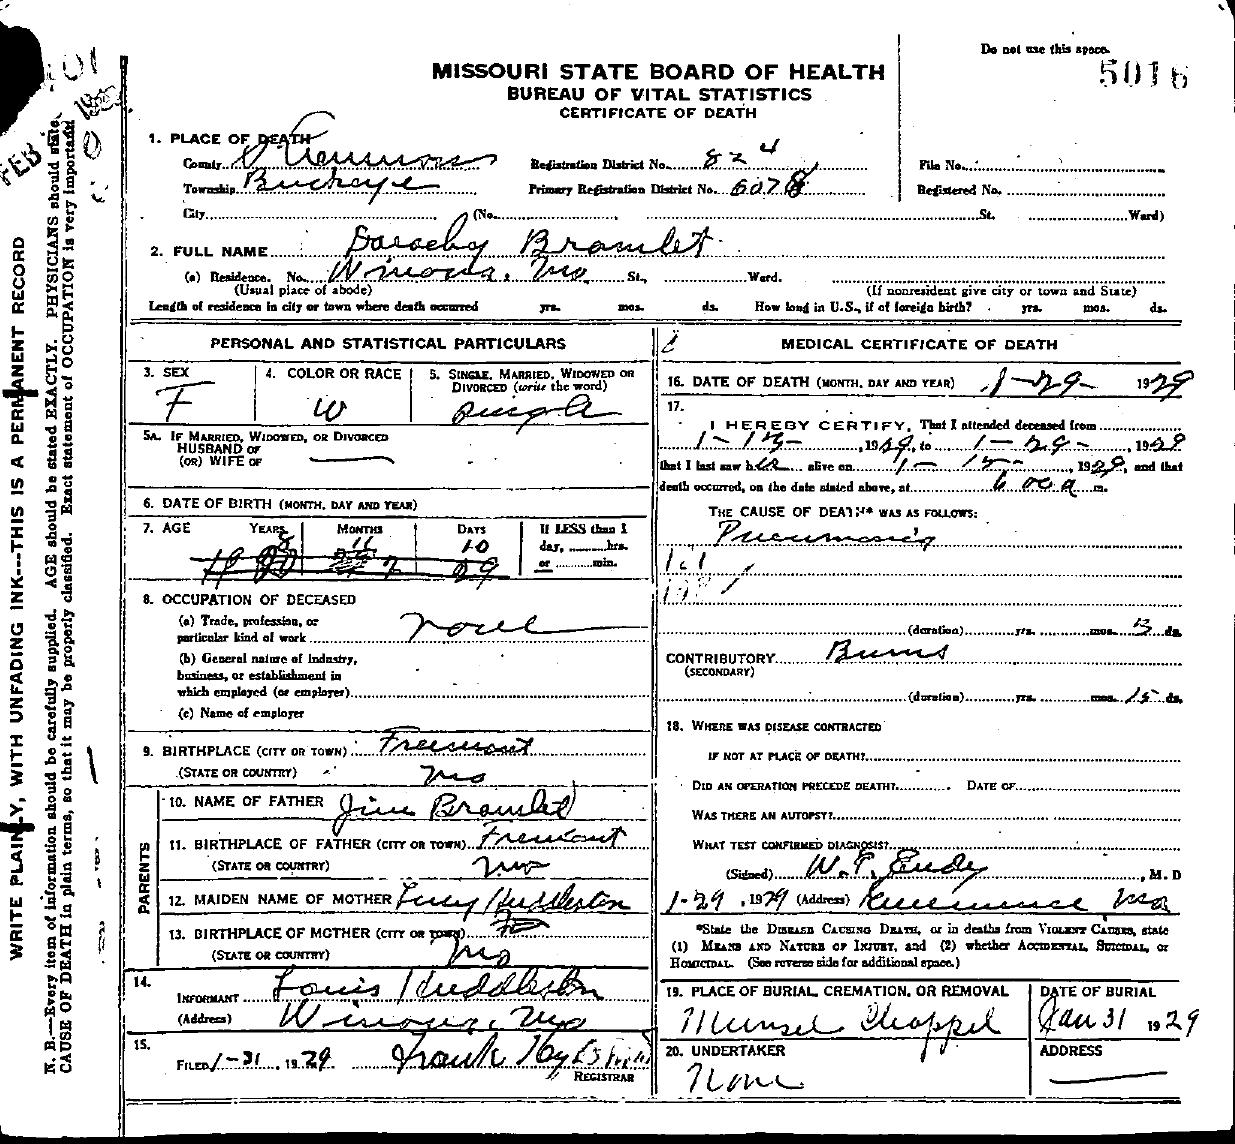 Do not use this space.
5016
MISSOURI STATE BOARD OF HEALTH
BUREAU OF VITAL STATISTICS
CERTIFICATE OF DEATH
FEB
1. PLACE OF DEATH
County Shannon Registration District No. 824 File No.
Township Buckeye Primary Registration District No. 6078 Registered No.
City (No. St. Ward)
2. FULL NAME Bramlet
(a) Residence. No. Winona, Mo. St., Ward.
(Usual place of abode) (If nonresident give city or town and State)
Length of residence in city or town where death occurred yrs. mos. ds. How long in U.S., if of foreign birth? yrs. mos. ds.
PERSONAL AND STATISTICAL PARTICULARS
3. SEX
F
4. COLOR OR RACE
W
5. SINGLE, MARRIED, WIDOWED OR
DIVORCED (write the word)
Single
5A. IF MARRIED, WIDOWED, OR DIVORCED
HUSBAND OF
(OR) WIFE OF
6. DATE OF BIRTH (MONTH, DAY AND YEAR)
7. AGE YEARS MONTHS DAYS If LESS than 1
11 10 day, hrs.
or min.
8. OCCUPATION OF DECEASED
(a) Trade, profession, or
particular kind of work none
(b) General nature of industry,
business, or establishment in
which employed (or employer)
(c) Name of employer
9. BIRTHPLACE (CITY OR TOWN) Fremont
(STATE OR COUNTRY) Mo
PARENTS
10. NAME OF FATHER Jim Bramlet
11. BIRTHPLACE OF FATHER (CITY OR TOWN) Fremont
(STATE OR COUNTRY) Mo
12. MAIDEN NAME OF MOTHER Huddleston
13. BIRTHPLACE OF MOTHER (CITY OR TOWN)
(STATE OR COUNTRY) Mo
14.
INFORMANT Louis Huddleston
(Address) Winona, Mo
15.
FILED 1-31, 1929 Frank
REGISTRAR
MEDICAL CERTIFICATE OF DEATH
16. DATE OF DEATH (MONTH, DAY AND YEAR) 1-29- 1929
17.
I HEREBY CERTIFY, That I attended deceased from
1-15-, 1929, to 1-29-, 1929
that I last saw her alive on 1-15-, 1929, and that
death occurred, on the date stated above, at 6 00 a m.
THE CAUSE OF DEATH* WAS AS FOLLOWS:
Pneumonia
(duration) yrs. mos. 3 ds.
CONTRIBUTORY Burns
(SECONDARY)
(duration) yrs. mos. 15 ds.
18. WHERE WAS DISEASE CONTRACTED
IF NOT AT PLACE OF DEATH?
DID AN OPERATION PRECEDE DEATH? DATE OF
WAS THERE AN AUTOPSY?
WHAT TEST CONFIRMED DIAGNOSIS?
(Signed) W. T. Eudy, M. D
1-29, 1929 (Address) Mo
*State the DISEASE CAUSING DEATH, or in deaths from VIOLENT CAUSES, state
(1) MEANS AND NATURE OF INJURY, and (2) whether ACCIDENTAL, SUICIDAL, or
HOMICIDAL. (See reverse side for additional space.)
19. PLACE OF BURIAL, CREMATION, OR REMOVAL
Munsel Chappel
DATE OF BURIAL
Jan 31 1929
20. UNDERTAKER
None
ADDRESS
WRITE PLAINLY, WITH UNFADING INK---THIS IS A PERMANENT RECORD
N. B.—Every item of information should be carefully supplied. AGE should be stated EXACTLY. PHYSICIANS should state
CAUSE OF DEATH in plain terms, so that it may be properly classified. Exact statement of OCCUPATION is very important